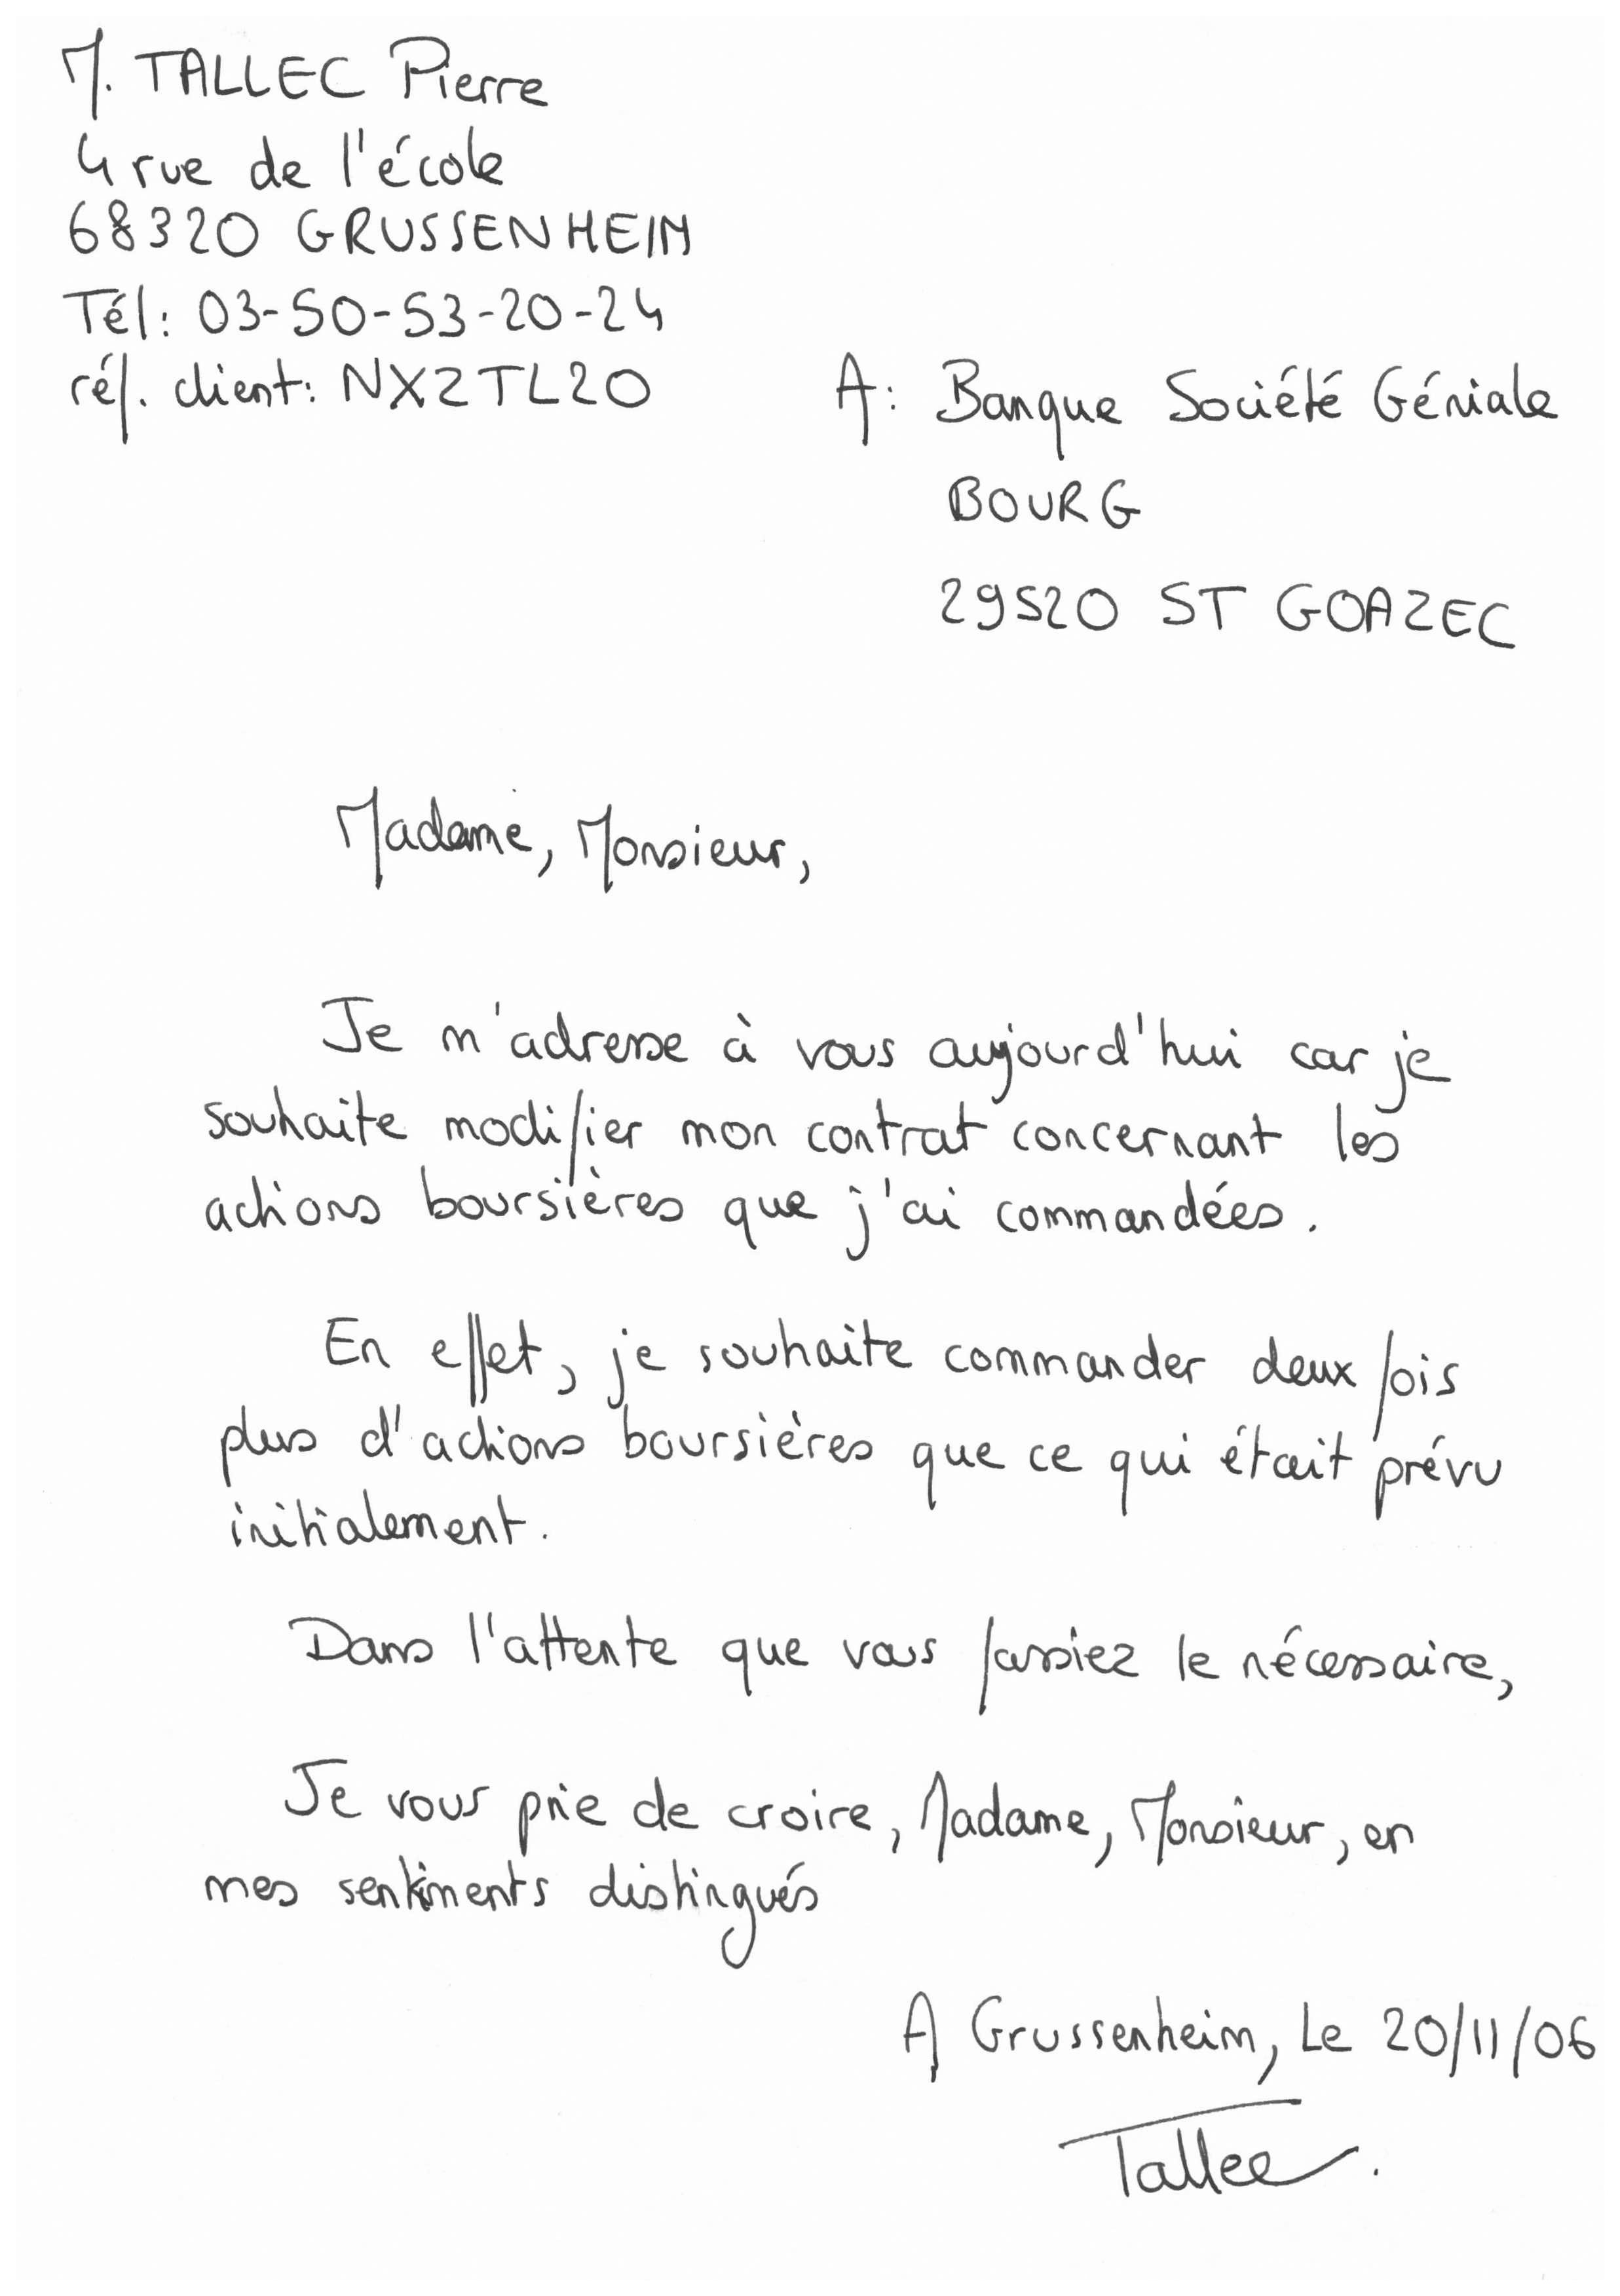 M. TALLEC Pierre
4 rue de l'école
68320 GRUSSENHEIM
Tél: 03-50-53-20-24
réf. client: NXZTL20
A: Banque Société Géniale
BOURG
29520 ST GOAZEC
Madame, Monsieur,
Je m'adresse à vous aujourd'hui car je
souhaite modifier mon contrat concernant les
actions boursières que j'ai commandées.
En effet, je souhaite commander deux fois
plus d'actions boursières que ce qui était prévu
initialement.
Dans l'attente que vous fassiez le nécessaire,
Je vous prie de croire, Madame, Monsieur, en
mes sentiments distingués
A Grussenheim, Le 20/11/06
Tallec